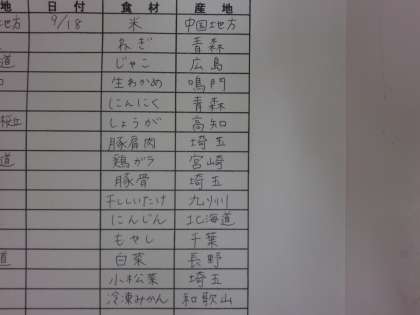 地 日付 食材 産地
地方 9/18 米 中国地方
ねぎ 青森
道 じゃこ 広島
生わかめ 鳴門
にんにく 青森
桜丘 しょうが 高知
豚肩肉 埼玉
道 鶏ガラ 宮崎
豚骨 埼玉
干ししいたけ 九州
にんじん 北海道
もやし 千葉
道 白菜 長野
小松菜 埼玉
冷凍みかん 和歌山